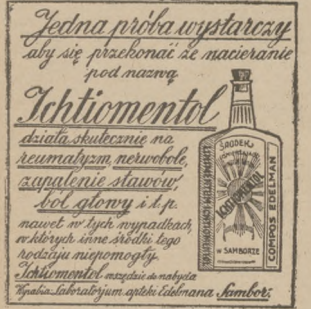 Jedna próba wystarczy
aby się przekonać że nacieranie
pod nazwą
Ichtiomentol
działa skutecznie na
reumatyzm, nerwobole,
zapalenie stawów,
ból głowy i t.p.
nawet w tych wypadkach,
w których inne środki tego
rodzaju niepomogły.
Ichtiomentol wszędzie do nabycia
Wyrabia: Laboratorjum apteki Edelmana Sambor.
ŚRODEK
ICHTIOMENTOL
W SAMBORZE
COMPOS EDELMAN